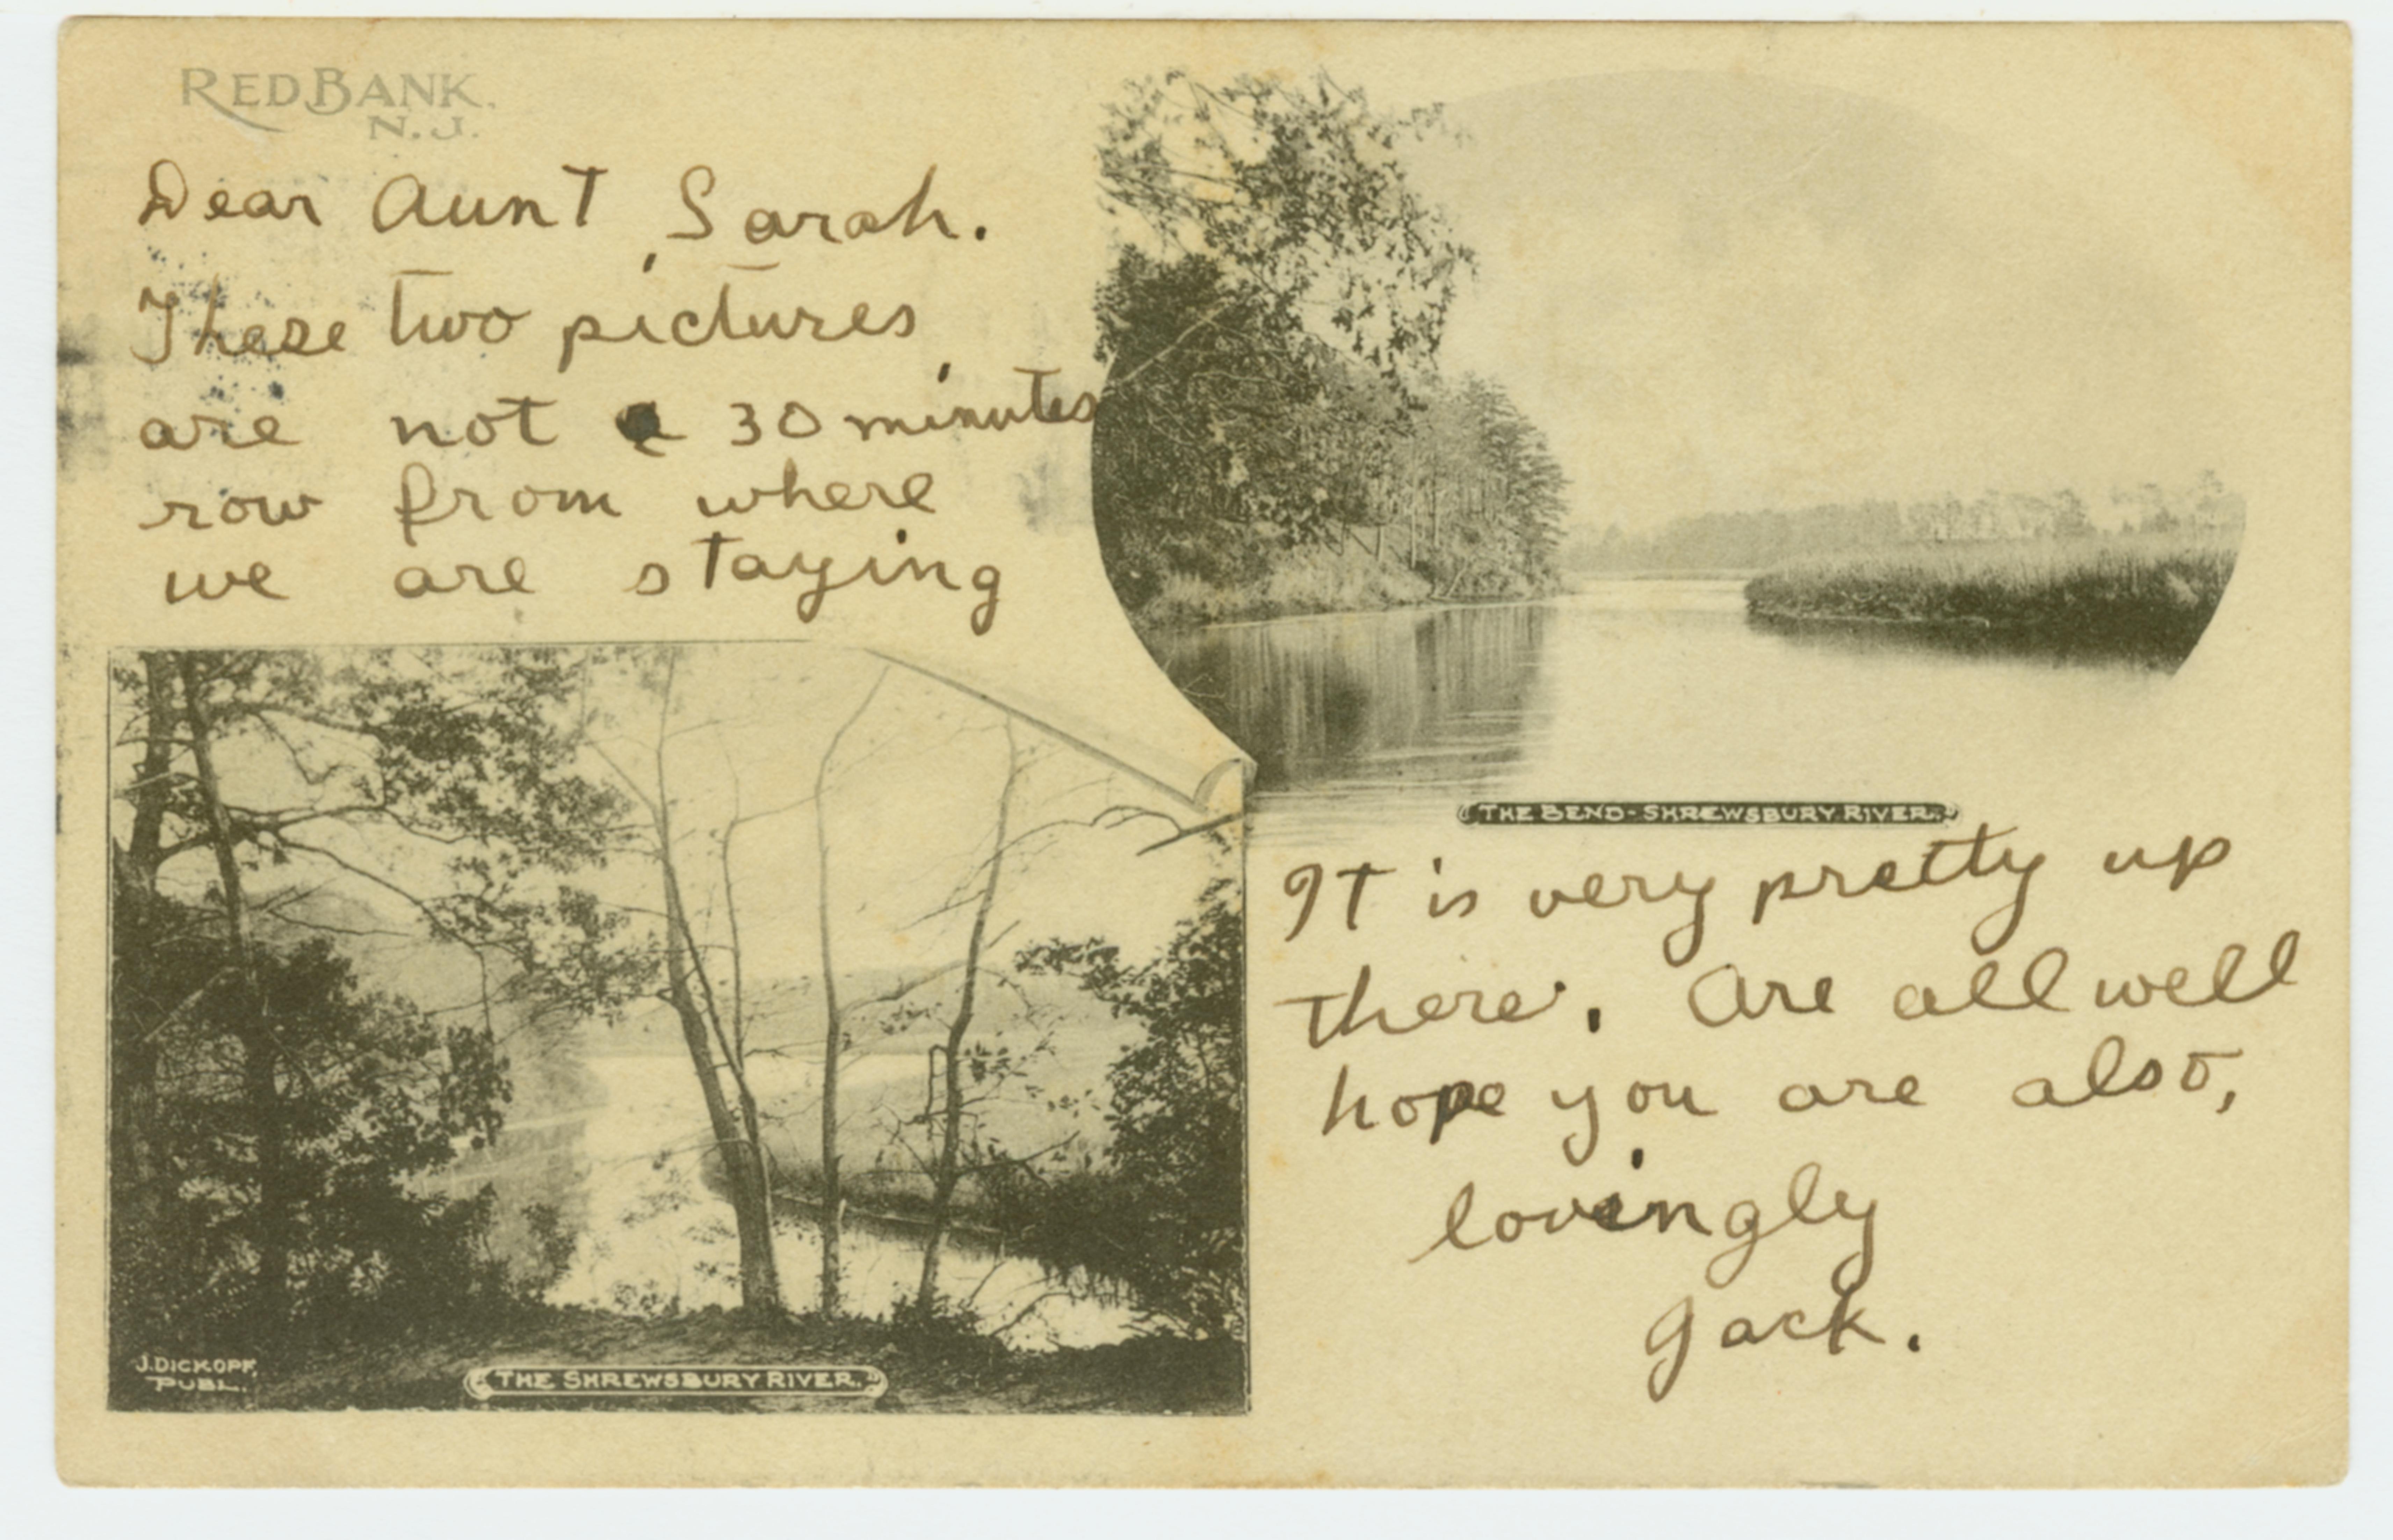 RED BANK,
N.J.
Dear Aunt Sarah.
These two pictures
are not a 30 minutes
row from where
we are staying
THE BEND-SHREWSBURY RIVER.
It is very pretty up
there. Are all well
hope you are also,
lovingly
Jack.
J. DICKOPF,
PUBL.
THE SHREWSBURY RIVER.